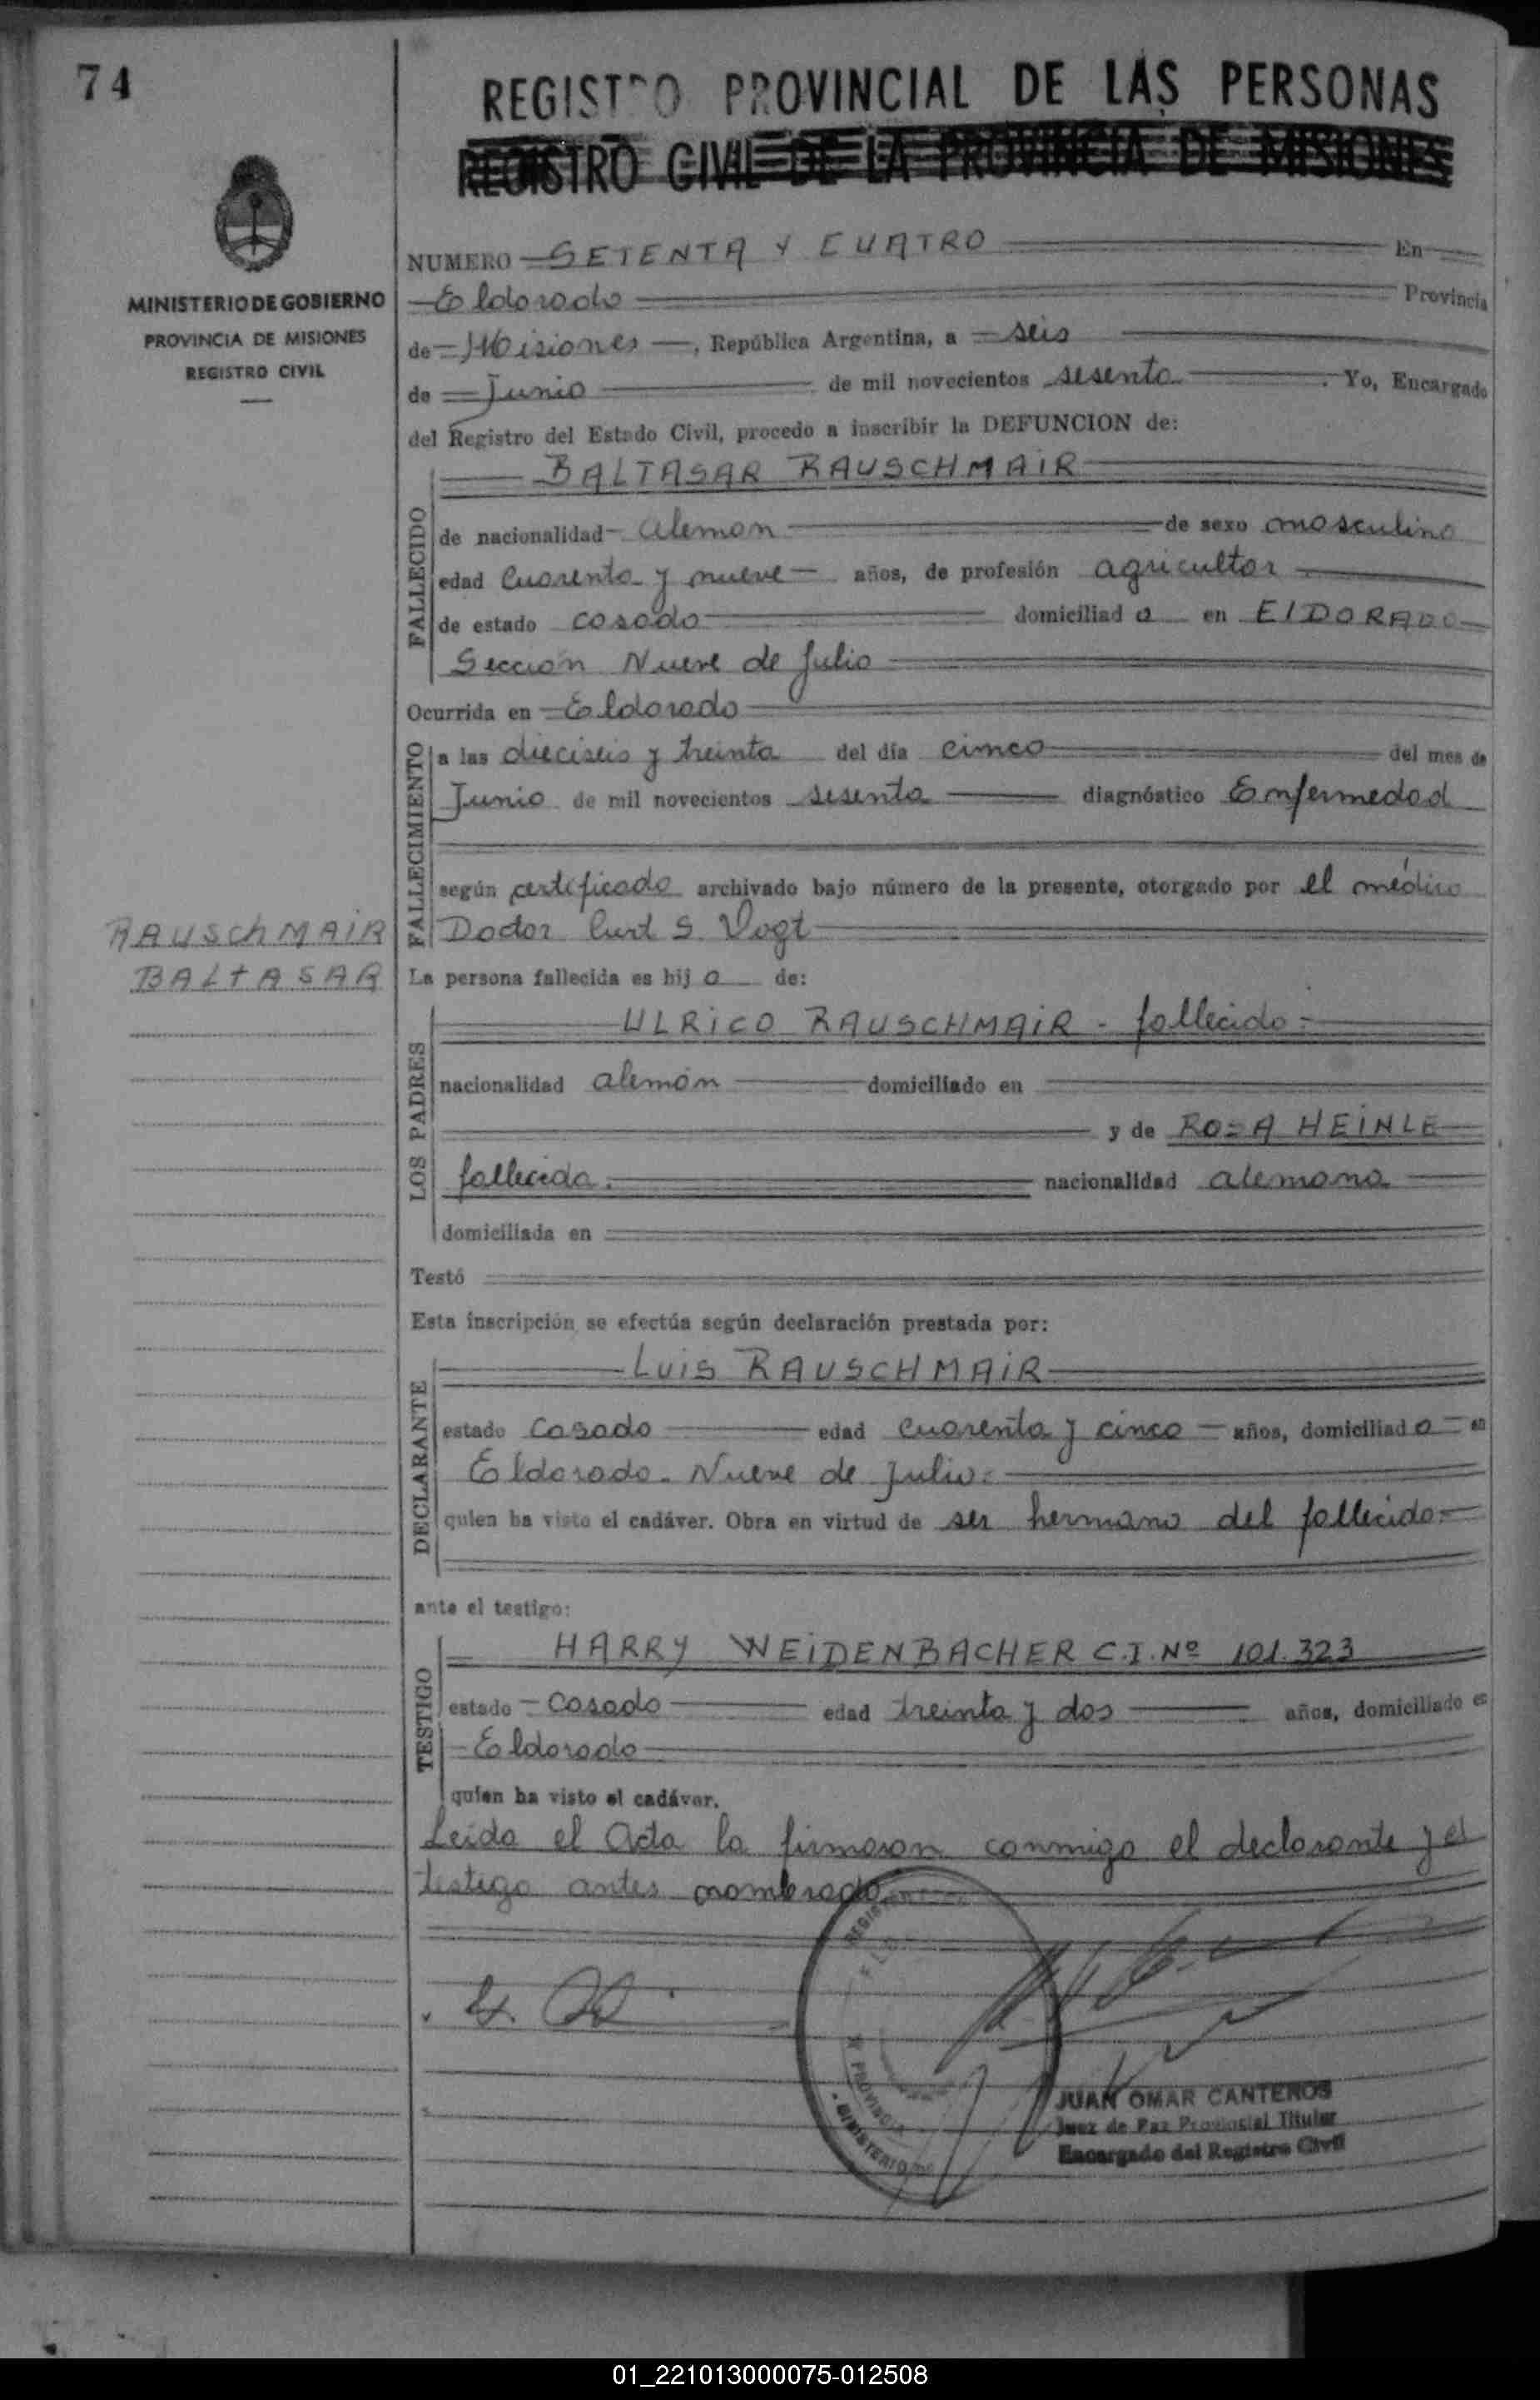 74
REGISTRO PROVINCIAL DE LAS PERSONAS
REGISTRO CIVIL DE LA PROVINCIA DE MISIONES
MINISTERIO DE GOBIERNO
PROVINCIA DE MISIONES
REGISTRO CIVIL
NUMERO SETENTA Y CUATRO En
Eldorado Provincia
de Misiones, República Argentina, a seis
de Junio de mil novecientos sesenta. Yo, Encargado
del Registro del Estado Civil, procedo a inscribir la DEFUNCION de:
BALTASAR RAUSCHMAIR
FALLECIDO
de nacionalidad aleman de sexo masculino
edad cuarenta y nueve años, de profesión agricultor
de estado casado domiciliado en ElDORADO
Sección Nueve de Julio
Ocurrida en Eldorado
FALLECIMIENTO
a las dieciseis y treinta del día cinco del mes de
Junio de mil novecientos sesenta diagnóstico Enfermedad
según certificado archivado bajo número de la presente, otorgado por el médico
Doctor Curt S. Vogt
RAUSCHMAIR
BALTASAR
La persona fallecida es hijo de:
LOS PADRES
ULRICO RAUSCHMAIR - fallecido.
nacionalidad alemán domiciliado en
y de ROSA HEINLE
fallecida. nacionalidad alemana
domiciliada en
Testó
Esta inscripción se efectúa según declaración prestada por:
DECLARANTE
LUIS RAUSCHMAIR
estado casado edad cuarenta y cinco años, domiciliado en
Eldorado - Nueve de Julio.
quien ha visto el cadáver. Obra en virtud de ser hermano del fallecido.
ante el testigo:
TESTIGO
HARRY WEIDENBACHER C.I. Nº 101.323
estado casado edad treinta y dos años, domiciliado en
Eldorado
quien ha visto el cadáver.
Leida el Acta la firmaron conmigo el declarante y el
testigo antes nombrado.
JUAN OMAR CANTEROS
Juez de Paz Provincial Titular
Encargado del Registro Civil
PROVINCIA
MINISTERIO
01_221013000075-012508